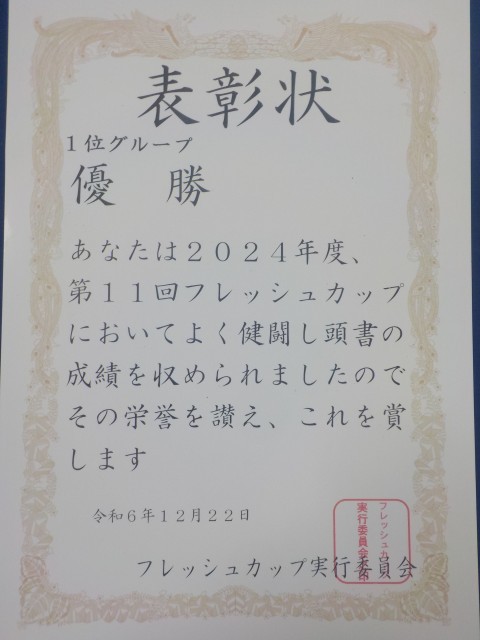 表彰状
１位グループ
優　勝
あなたは２０２４年度、
第１１回フレッシュカップ
においてよく健闘し頭書の
成績を収められましたので
その栄誉を讃え、これを賞
します
令和６年１２月２２日
フレッシュカップ実行委員会
フレッシュカ
実行委員会
印